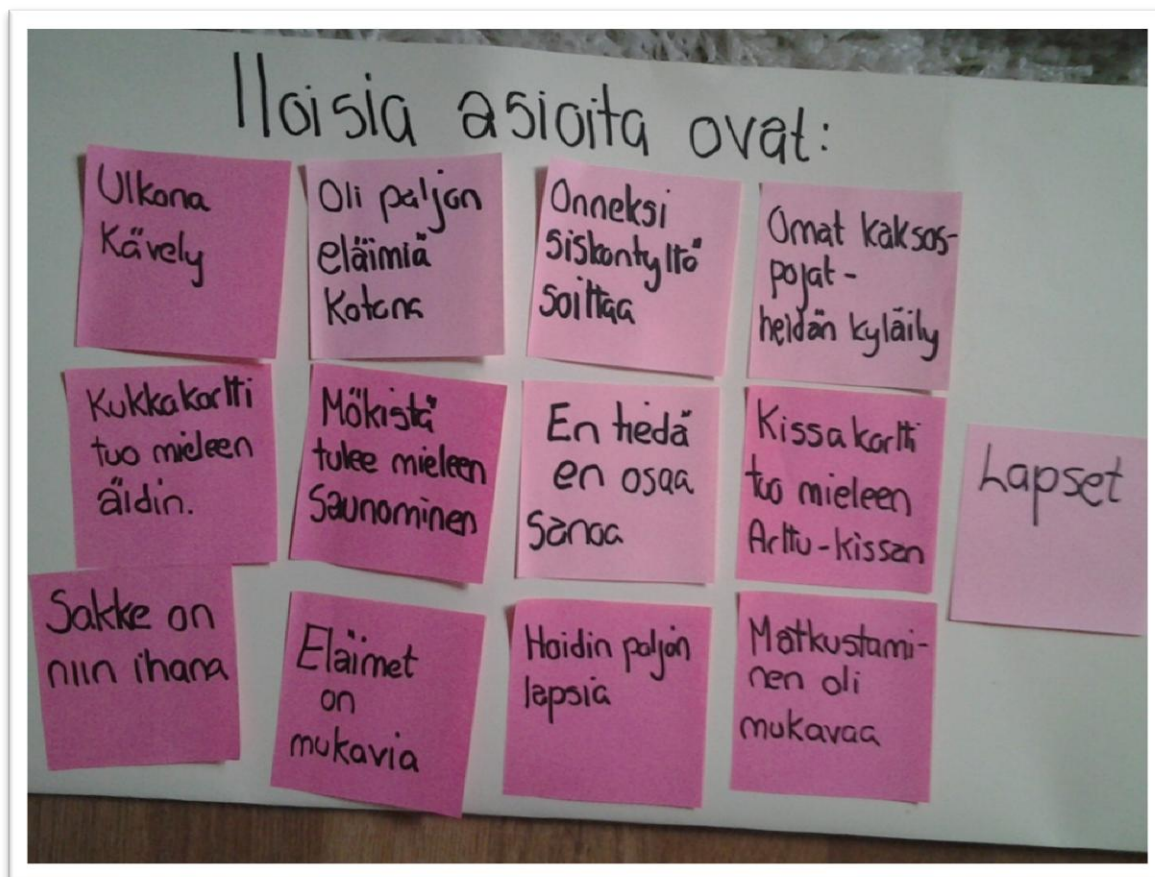 Iloisia asioita ovat:
Ulkona
Kävely
Oli paljon
eläimiä
Kotona
Onneksi
siskontyttö
soittaa
Omat kaksos-
pojat-
heidän kyläily
Kukkakortti
tuo mieleen
äidin.
Mökistä
tulee mieleen
Saunominen
En tiedä
en osaa
sanoa
Kissakortti
tuo mieleen
Arttu-kissan
Lapset
Sakke on
niin ihana
Eläimet
on
mukavia
Hoidin paljon
lapsia
Matkustami-
nen oli
mukavaa